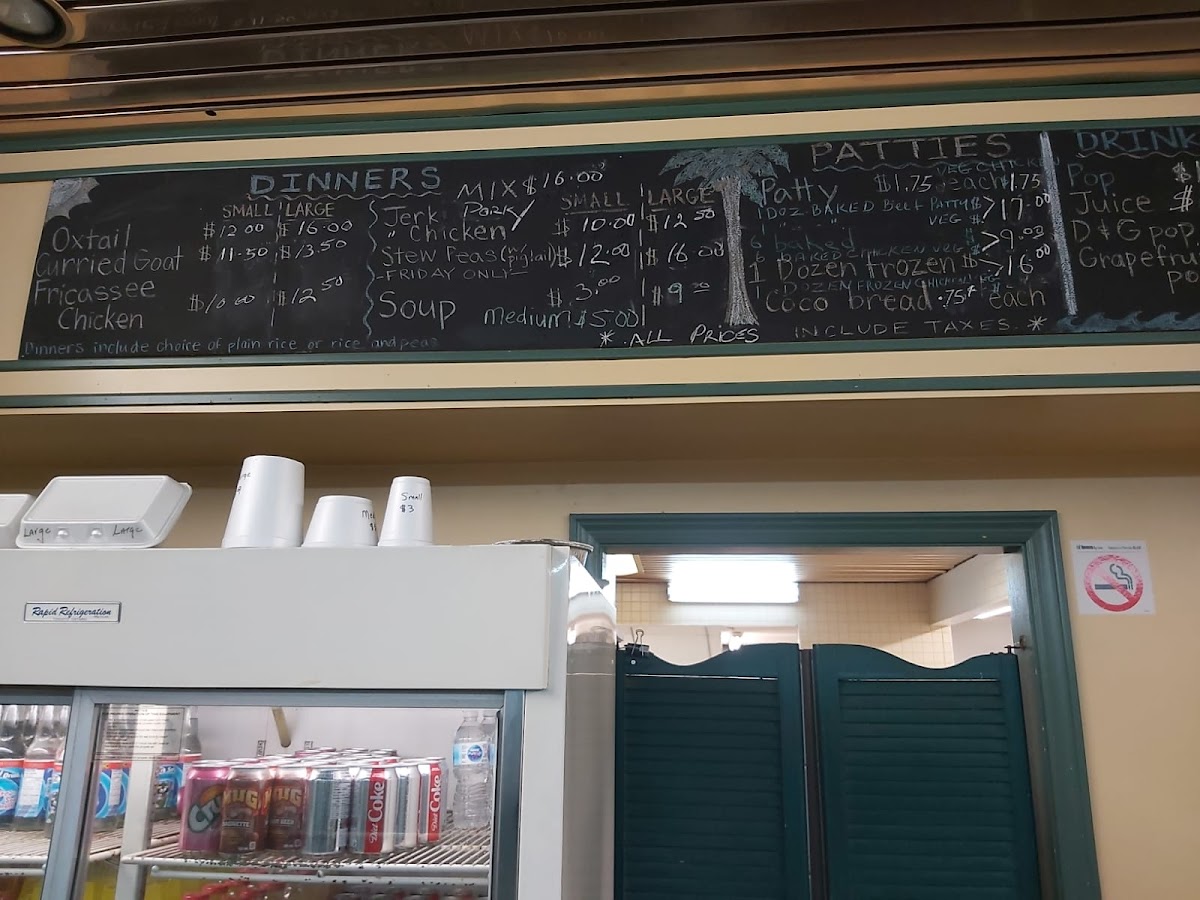 DINNERS
MIX $16.00
SMALL LARGE
Oxtail $12.00 $16.00
Curried Goat $11.50 $13.50
Fricassee
Chicken $10.00 $12.50
Dinners include choice of plain rice or rice and peas
SMALL LARGE
Jerk Pork
" Chicken $10.00 $12.50
Stew Peas (w/pigtail) $12.00 $16.00
-FRIDAY ONLY-
Soup $3.00 $9.00
medium $5.00
* ALL PRICES INCLUDE TAXES. *
PATTIES
VEG CHICKEN
Patty $1.75 each $1.75
1 DOZ BAKED Beef Patty $ >17.00
VEG $
6 baked $ >9.00
6 BAKED CHICKEN VEG $
1 Dozen frozen $ >16.00
1 DOZEN FROZEN CHICKEN
Coco bread .75¢ each
DRINK
Pop $1
Juice $
D&G pop
Grapefru
po
Large Large
Small
$3
Rapid Refrigeration
Crush
MUG
MUG
Diet Coke
Coke